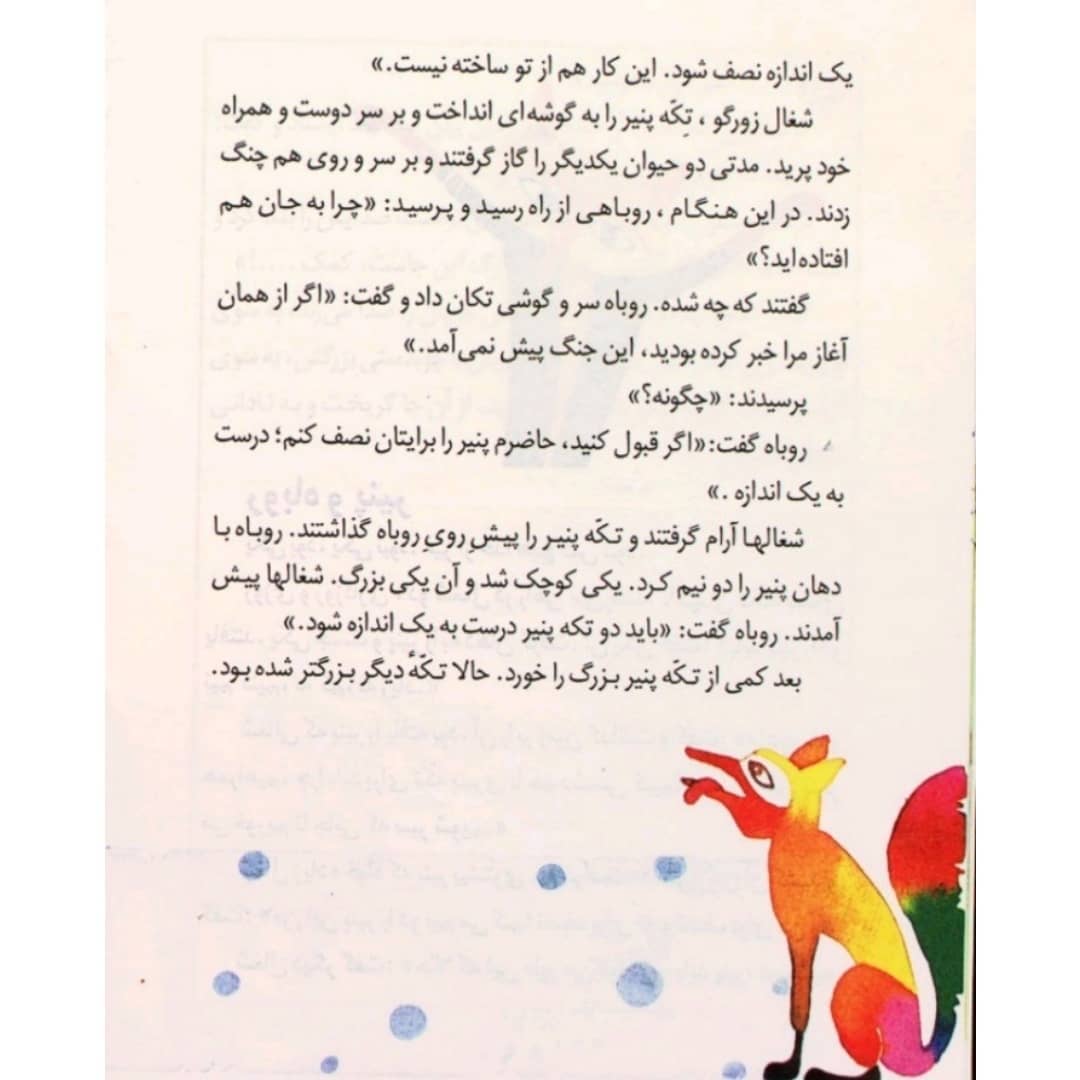 یک اندازه نصف شود. این کار هم از تو ساخته نیست.»
شغال زورگو ، تِکّه پنیر را به گوشه‌ای انداخت و بر سر دوست و همراه
خود پرید. مدتی دو حیوان یکدیگر را گاز گرفتند و بر سر و روی هم چنگ
زدند. در این هنگام ، روباهی از راه رسید و پرسید: «چرا به جان هم
افتاده‌اید؟»
گفتند که چه شده. روباه سر و گوشی تکان داد و گفت: «اگر از همان
آغاز مرا خبر کرده بودید، این جنگ پیش نمی‌آمد.»
پرسیدند: «چگونه؟»
روباه گفت:«اگر قبول کنید، حاضرم پنیر را برایتان نصف کنم؛ درست
به یک اندازه .»
شغالها آرام گرفتند و تکّه پنیر را پیش رویِ روباه گذاشتند. روباه با
دهان پنیر را دو نیم کرد. یکی کوچک شد و آن یکی بزرگ. شغالها پیش
آمدند. روباه گفت: «باید دو تکه پنیر درست به یک اندازه شود.»
بعد کمی از تکّه پنیر بزرگ را خورد. حالا تکّهٔ دیگر بزرگتر شده بود.
روباه و پنیر